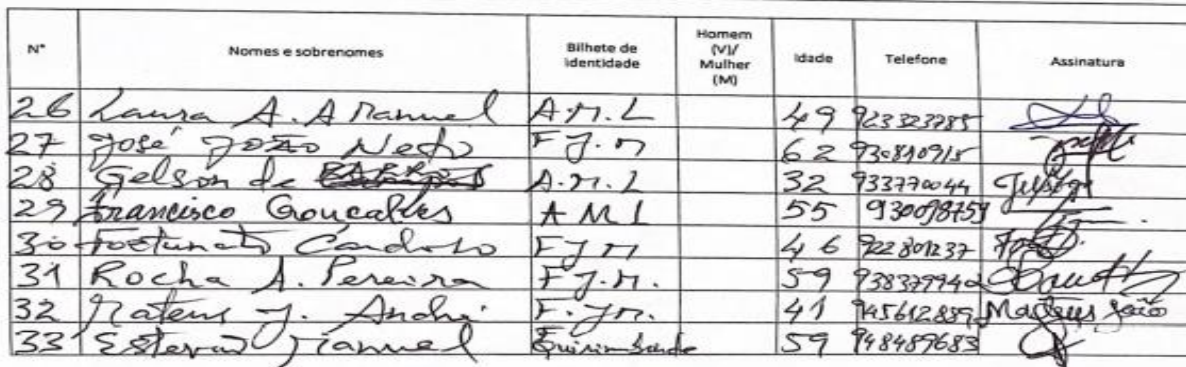 N° Nomes e sobrenomes Bilhete de identidade Homem (V)/ Mulher (M) Idade Telefone Assinatura
26 Laura A. A Manuel A.M.L 49 923323785
27 José João Neto F J. M 62 930810915
28 Gelson de A.M.L 32 933770044
29 Francisco Goncalves A M L 55 930098759
30 Fortunato Cardoso F J M 46 922801237
31 Rocha A. Pereira F J.M. 59 938379940
32 Mateus J. André F. J M. 41 945612889 Mateus João
33 Estevão Manuel 59 948489683